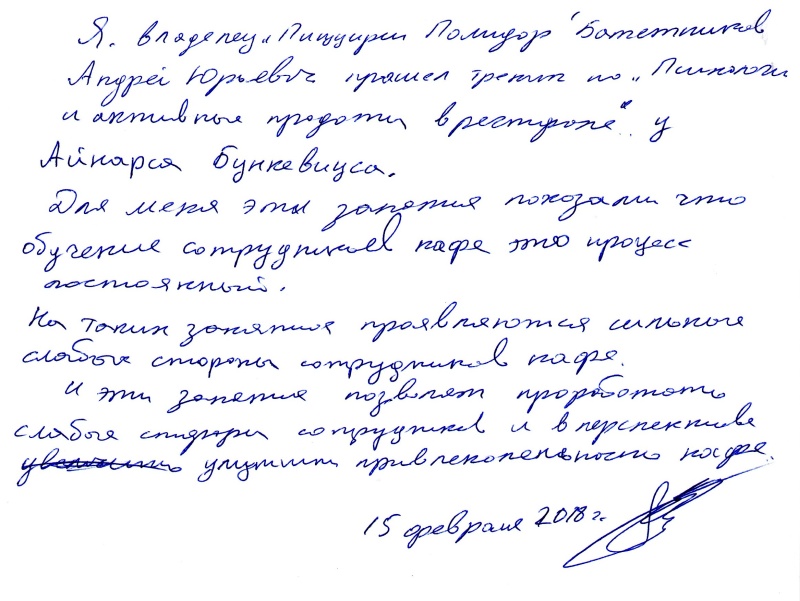 Я. владелец „Пиццирии Полидор" Боженников
Андрей Юрьевич прошел тренинг по „Психологии
и активные продажи в ресторане" у
Айнарса Бункевицса.
Для меня эти занятия показали что
обучение сотрудников кафе это процесс
постоянный.
На таких занятиях проявляются сильные
слабые стороны сотрудников кафе.
И эти занятия позволят проработать
слабые стороны сотрудников и в перспективе
улучшит привлекательность кафе.
15 февраля 2018 г.